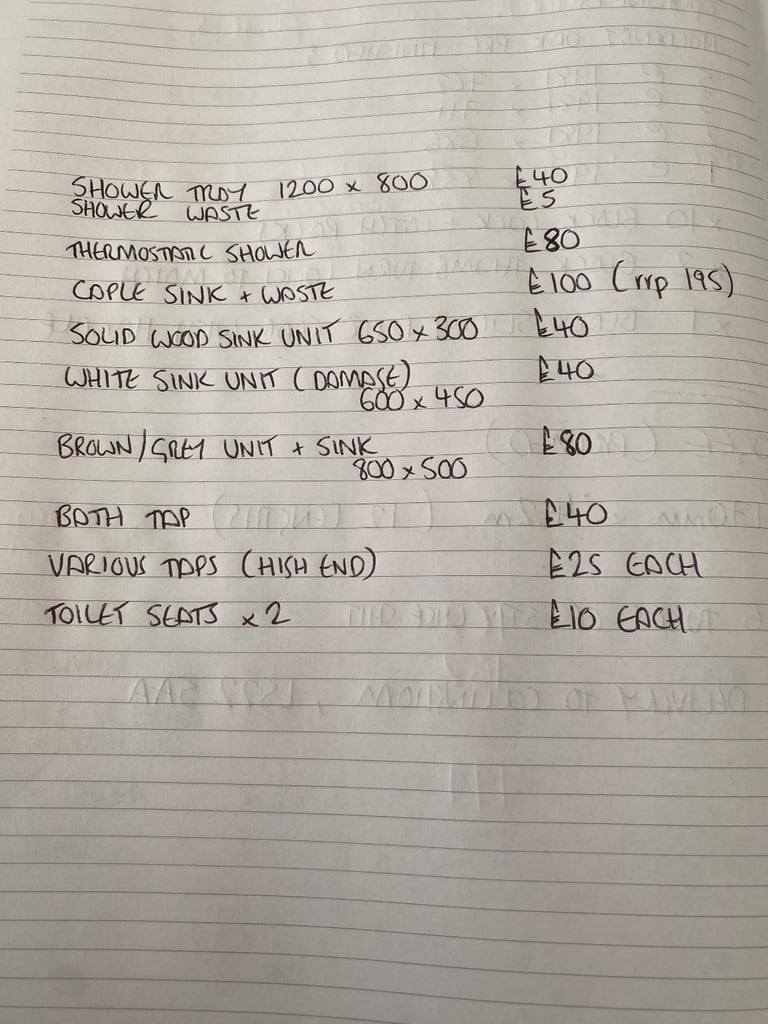 SHOWER TRAY 1200 x 800 £40
SHOWER WASTE £5
THERMOSTATIC SHOWER £80
CAPLE SINK + WASTE £100 (rrp 195)
SOLID WOOD SINK UNIT 650 x 300 £40
WHITE SINK UNIT (DAMAGE) £40
600 x 450
BROWN/GREY UNIT + SINK £80
800 x 500
BATH TAP £40
VARIOUS TAPS (HIGH END) £25 EACH
TOILET SEATS x 2 £10 EACH